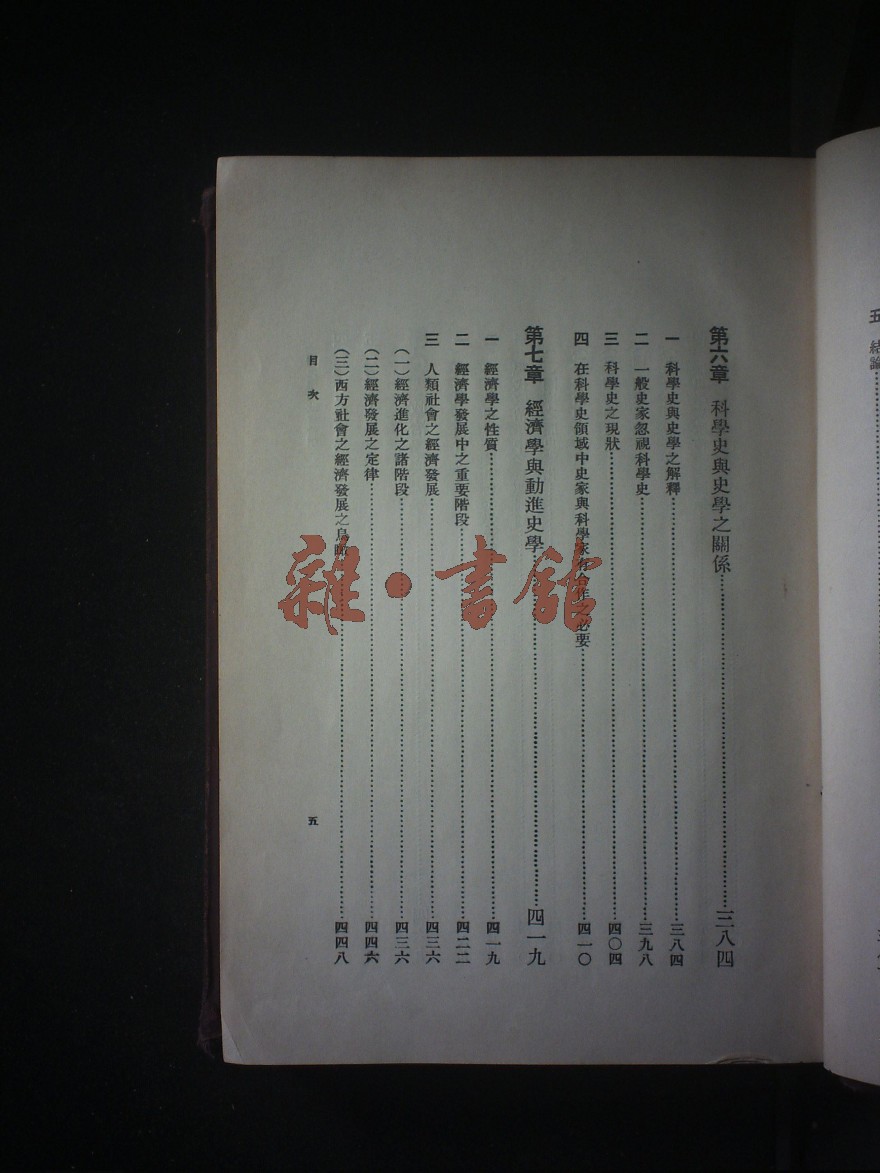 第六章　科學史與史學之關係……三八四
一　科學史與史學之解釋……三八四
二　一般史家忽視科學史……三九八
三　科學史之現狀……四〇四
四　在科學史領域中史家與科學家有合作之必要……四一〇
第七章　經濟學與動進史學……四一九
一　經濟學之性質……四一九
二　經濟學發展中之重要階段……四二二
三　人類社會之經濟發展……四三六
（一）經濟進化之諸階段……四三六
（二）經濟發展之定律……四四六
（三）西方社會之經濟發展之鳥瞰……四四八
目次
五
五　結論
雜·書館